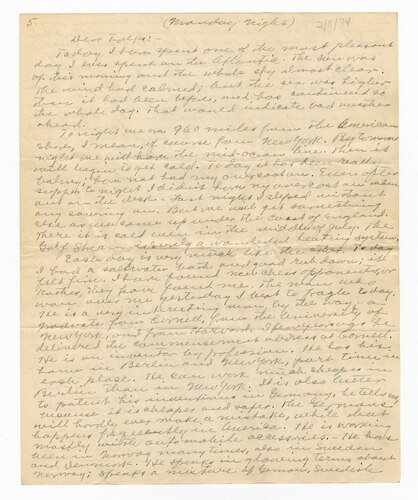 5. (Monday Night) 2/11/74
Dear Folks:-
Today I have spent one of the most pleasant
day I ever spent on the Atlantic. The sun was
up this morning and the whole sky almost clear.
The wind had calmed; but the sea was higher
than it had been before, and has continued so
the whole day. That would indicate bad weather
ahead.
Tonight we are 960 miles from the American
shore, I mean, of course from New York. By tomorrow
night we will have the mid-ocean line. Then it
will begin to get cold. Today it has been really
balmy; I have not had my overcoat on. Even after
supper to night I didn't have my overcoat on when
out on the deck. - Last night I slept without
any covering on. But we will get something
else as we come up under the coast of England.
There it is cold even in the middle of July. The
Golf Stream is surely a wonderful heating system.
Each day is very much like the other. Today
I had a saltwater bath and good rub down; it
felt fine. I have found new chess opponents, or
rather, they have found me. The man who
won over me yesterday I beat to frazle today.
He is a very interesting man, by the way - a
graduate from Cornell, from the University of
New York, and from Harvard. I few years ago he
delivered the commencement address at Cornell.
He is an inventor by profession. He has his
home in Berlin and New York, part time in
each place. He can work much cheaper in
Berlin than in New York. It is also better
to patent his inventions in Germany, he tells me,
because it is cheaper and safer. The Germans
will hardly ever make a mistake, while that
happens frequently in America. He is working
mostly with automobile accessories. He has
been in Norway many times, also in Sweden
and Denmark. He speaks in glowing terms about
Norway; speaks a mixture of German, Swedish